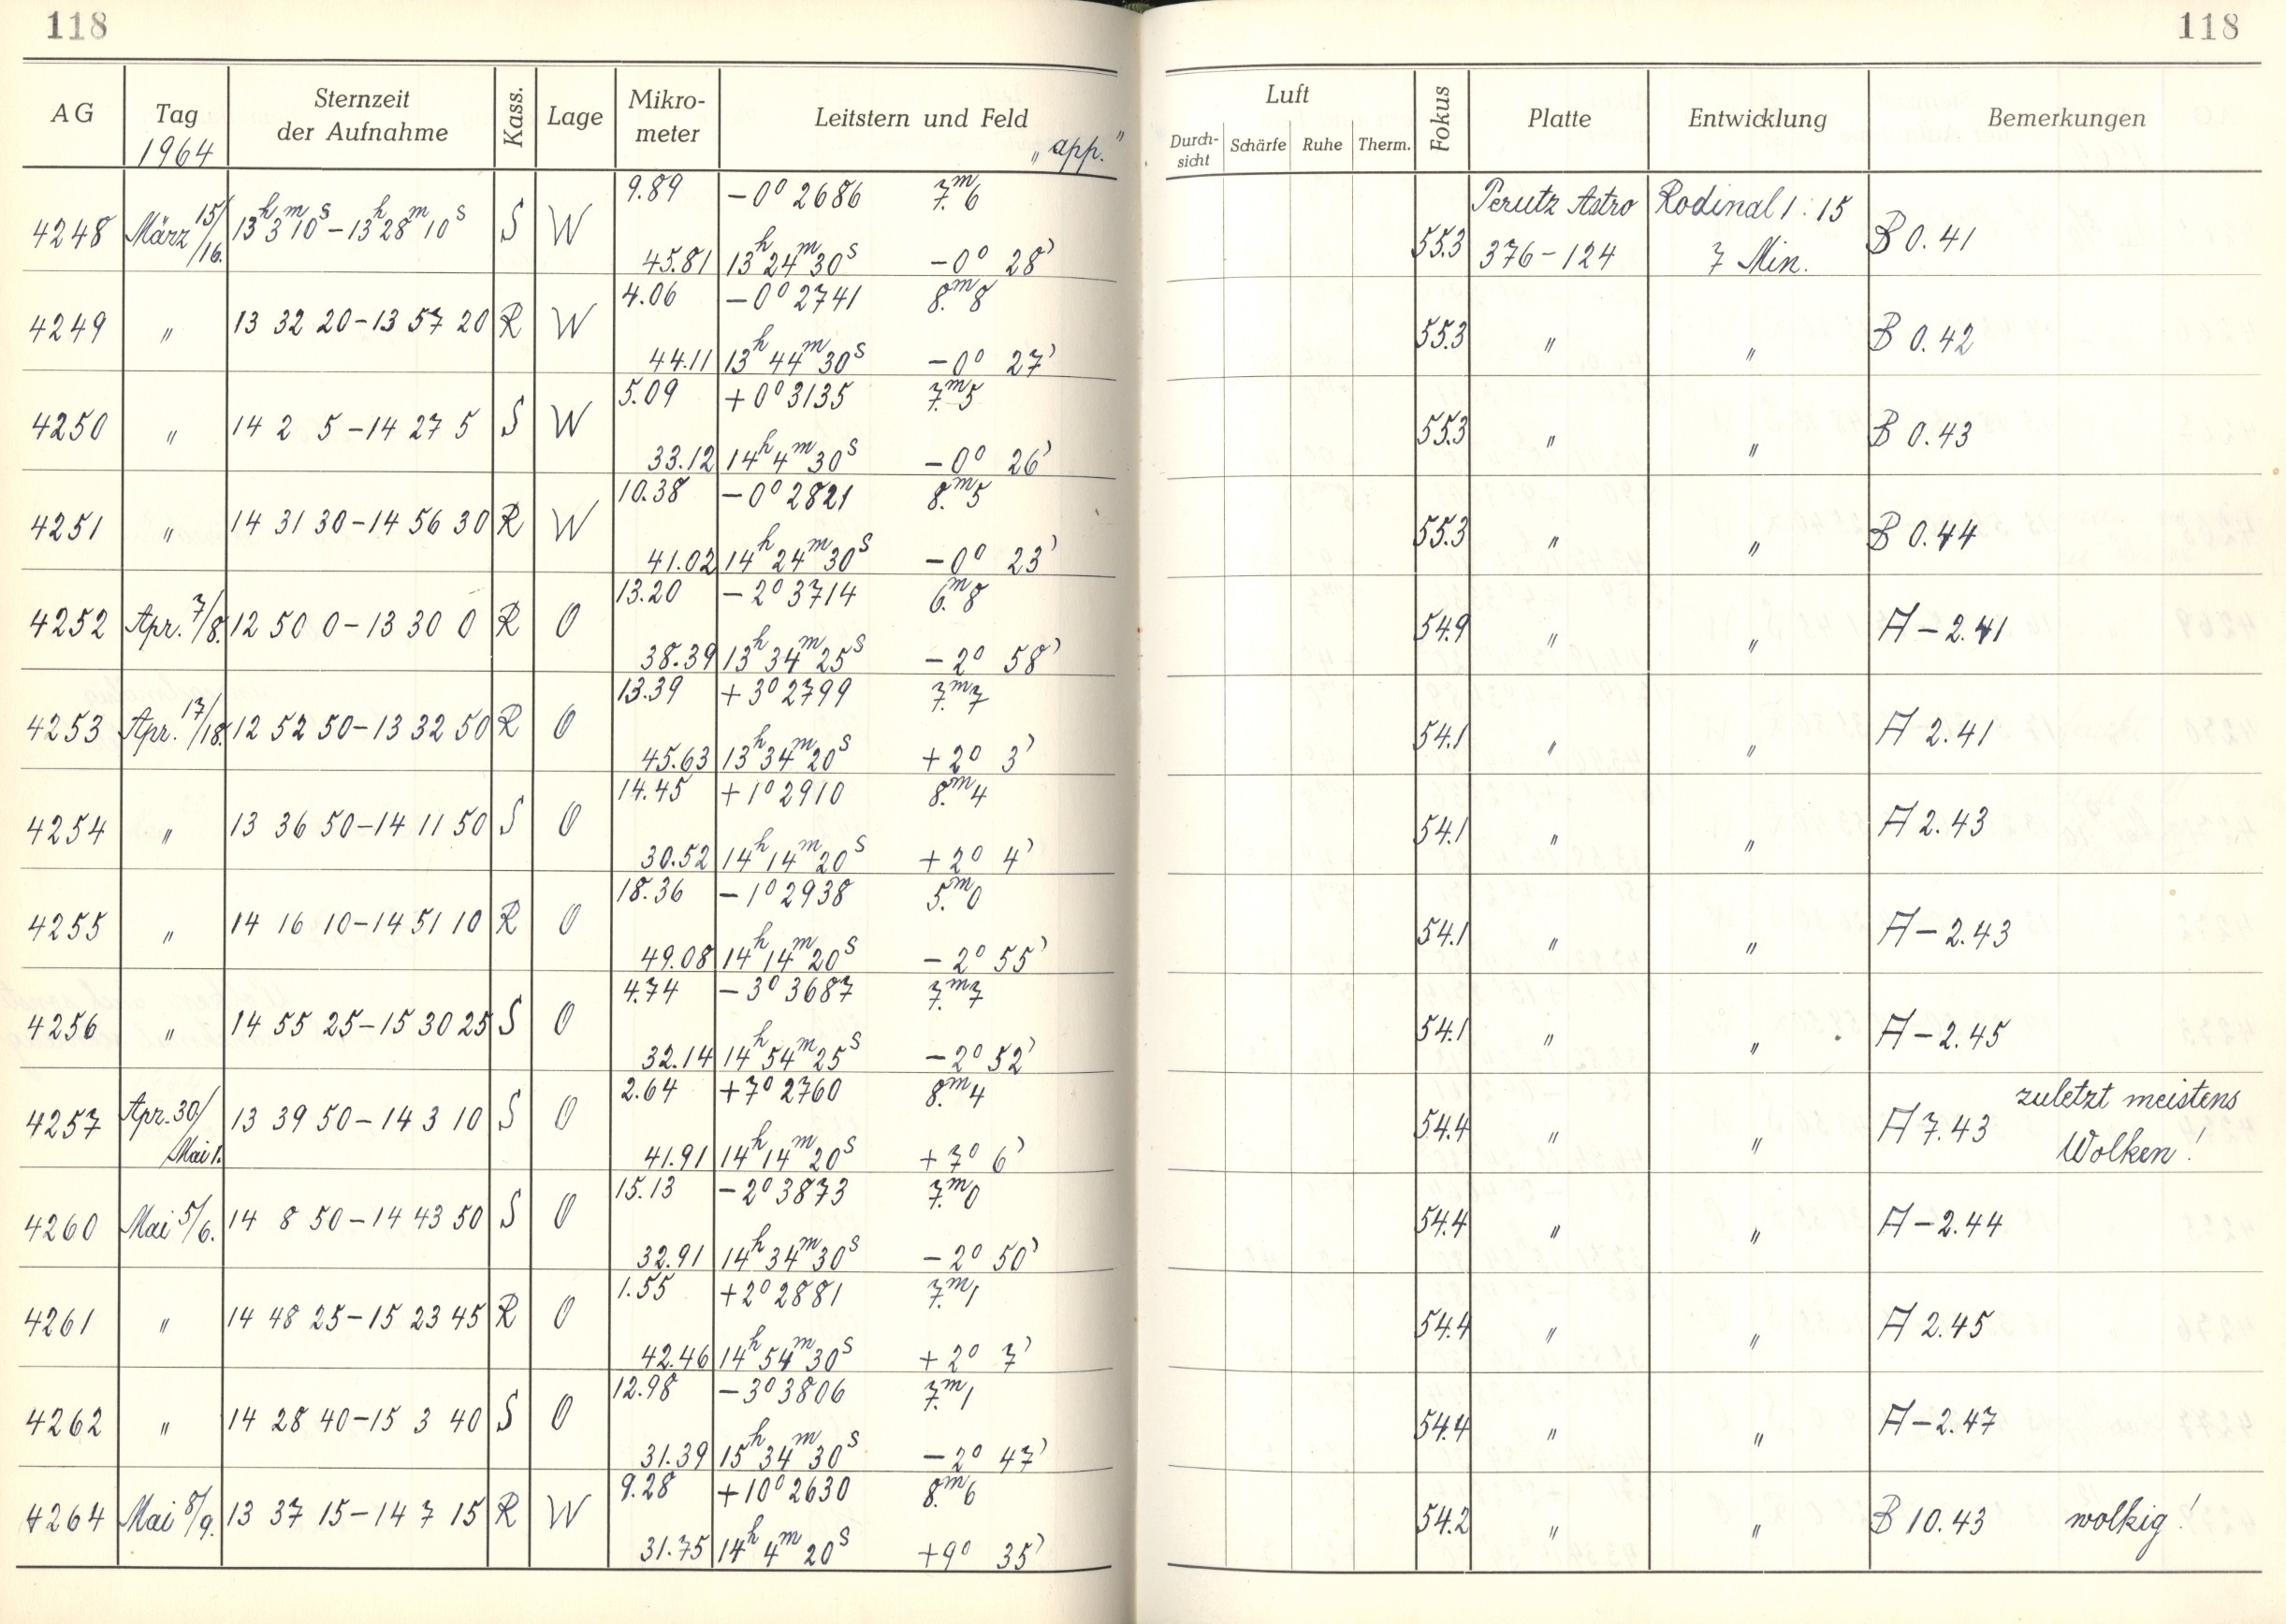 118
118
AG Tag 1964 Sternzeit der Aufnahme Kass. Lage Mikro-meter Leitstern und Feld „app.“
Luft Durch-sicht Schärfe Ruhe Therm. Fokus Platte Entwicklung Bemerkungen
9.89 −0° 2686 7.ᵐ6 Perutz Astro Rodinal 1:15
4248 März 15/16. 13ʰ3ᵐ10ˢ−13ʰ28ᵐ10ˢ S W 55.3 376−124 7 Min. B 0.41
45.81 13ʰ24ᵐ30ˢ −0° 28'
4.06 −0° 2741 8.ᵐ8
4249 " 13 32 20−13 57 20 R W 55.3 " " B 0.42
44.11 13ʰ44ᵐ30ˢ −0° 27'
5.09 +0° 3135 7.ᵐ5
4250 " 14 2 5−14 27 5 S W 55.3 " " B 0.43
33.12 14ʰ4ᵐ30ˢ −0° 26'
10.38 −0° 2821 8.ᵐ5
4251 " 14 31 30−14 56 30 R W 55.3 " " B 0.44
41.02 14ʰ24ᵐ30ˢ −0° 23'
13.20 −2° 3714 6.ᵐ8
4252 Apr. 7/8. 12 50 0−13 30 0 R O 54.9 " " A −2.41
38.39 13ʰ34ᵐ25ˢ −2° 58'
13.39 +3° 2799 7.ᵐ7
4253 Apr. 17/18. 12 52 50−13 32 50 R O 54.1 " " A 2.41
45.63 13ʰ34ᵐ20ˢ +2° 3'
14.45 +1° 2910 8.ᵐ4
4254 " 13 36 50−14 11 50 S O 54.1 " " A 2.43
30.52 14ʰ14ᵐ20ˢ +2° 4'
18.36 −1° 2938 5.ᵐ0
4255 " 14 16 10−14 51 10 R O 54.1 " " A −2.43
49.08 14ʰ14ᵐ20ˢ −2° 55'
4.74 −3° 3687 7.ᵐ7
4256 " 14 55 25−15 30 25 S O 54.1 " " A −2.45
32.14 14ʰ54ᵐ25ˢ −2° 52'
2.64 +7° 2760 8.ᵐ4 zuletzt meistens
4257 Apr. 30/Mai 1. 13 39 50−14 3 10 S O 54.4 " " A 7.43 Wolken!
41.91 14ʰ14ᵐ20ˢ +7° 6'
15.13 −2° 3873 7.ᵐ0
4260 Mai 5/6. 14 8 50−14 43 50 S O 54.4 " " A −2.44
32.91 14ʰ34ᵐ30ˢ −2° 50'
1.55 +2° 2881 7.ᵐ1
4261 " 14 48 25−15 23 45 R O 54.4 " " A 2.45
42.46 14ʰ54ᵐ30ˢ +2° 7'
12.98 −3° 3806 7.ᵐ1
4262 " 14 28 40−15 3 40 S O 54.4 " " A −2.47
31.39 15ʰ34ᵐ30ˢ −2° 47'
9.28 +10° 2630 8.ᵐ6
4264 Mai 8/9. 13 37 15−14 7 15 R W 54.2 " " B 10.43 wolkig!
31.75 14ʰ4ᵐ20ˢ +9° 35'